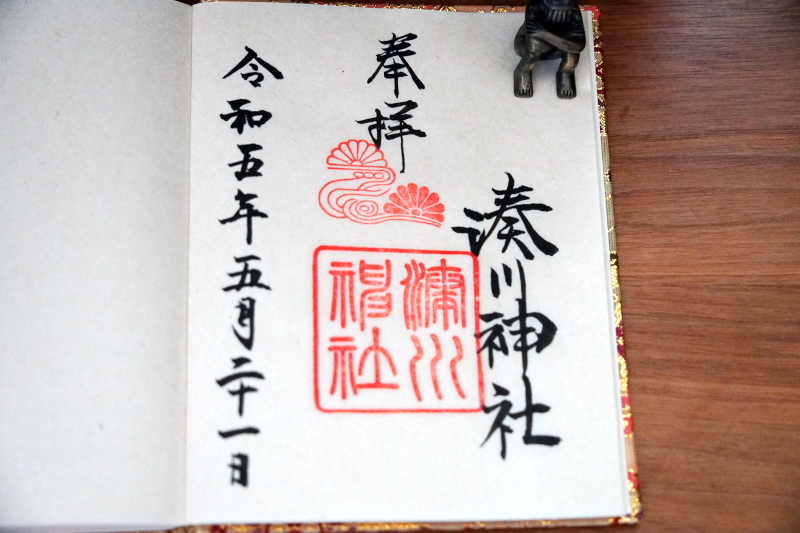 湊川神社
奉拝
湊川
神社
令和五年五月二十一日